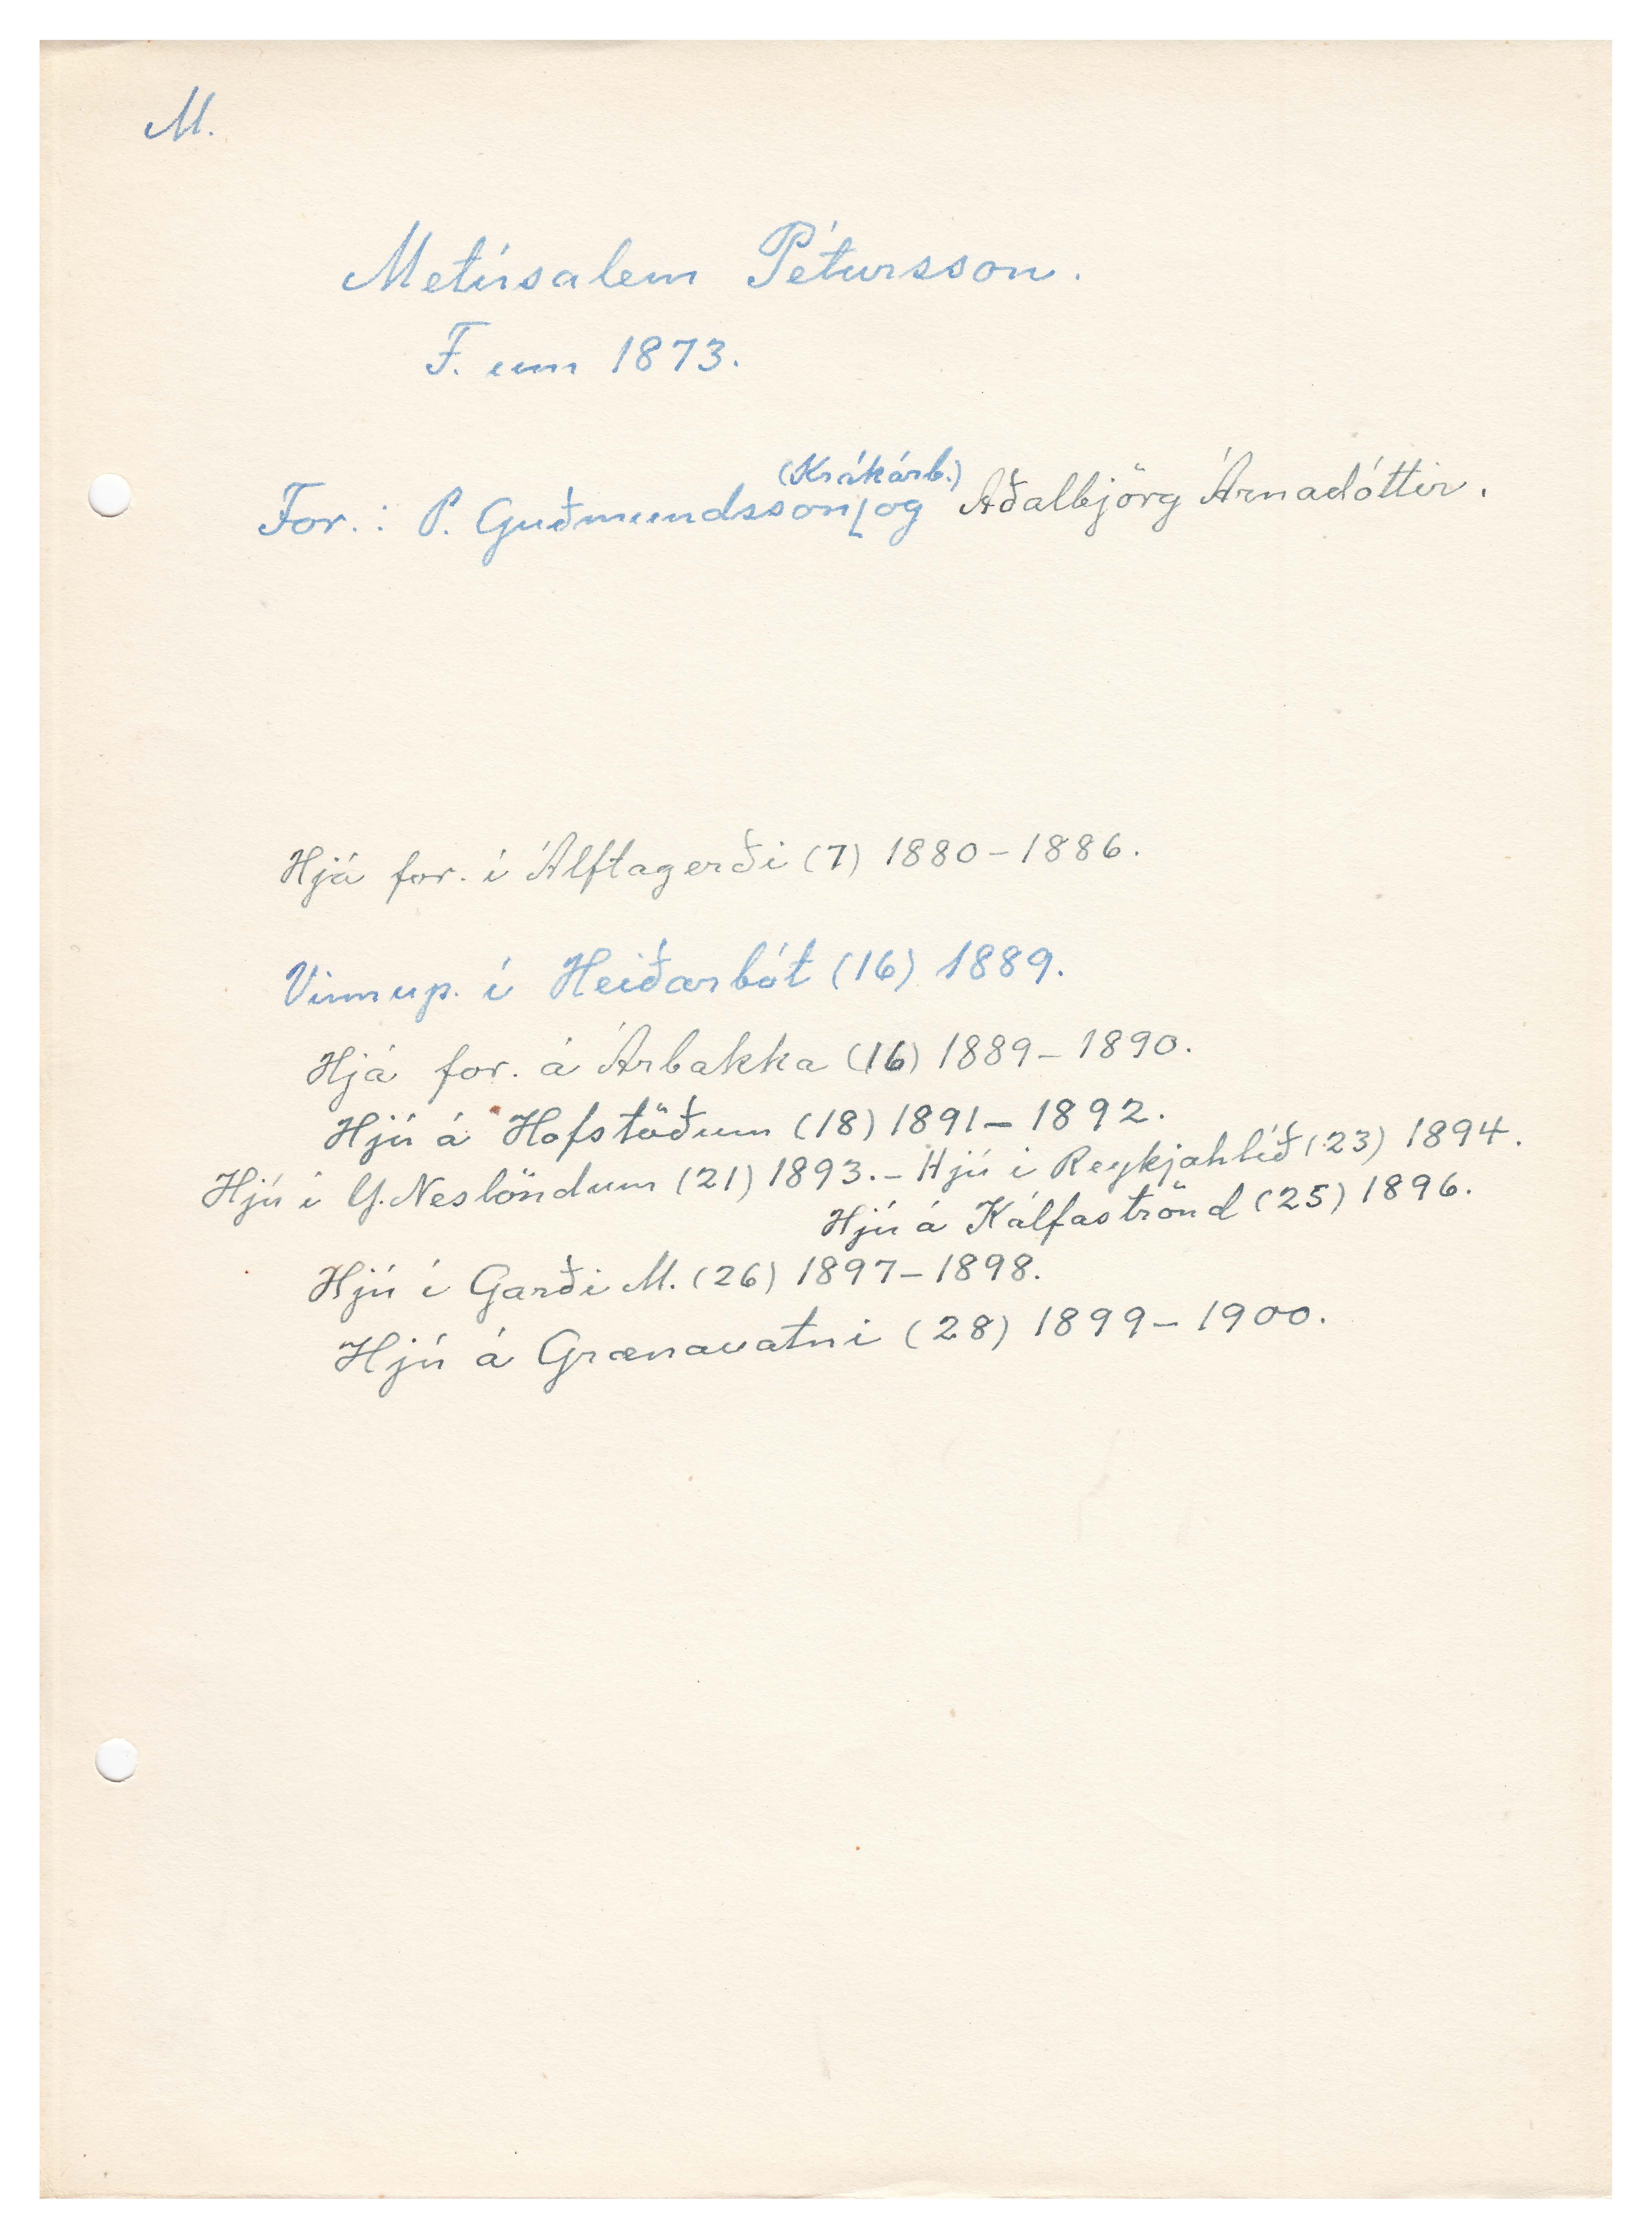 M.
Metúsalem Pétursson.
F. um 1873.
(Krákárb.)
For.: P. Guðmundsson og Aðalbjörg Árnadóttir.
Hjá for. í Álftagerði (7) 1880-1886.
Vinnup. í Heiðarbót (16) 1889.
Hjá for. á Árbakka (16) 1889-1890.
Hjú á Hofstöðum (18) 1891-1892.
Hjú í Y. Neslöndum (21) 1893. - Hjú í Reykjahlíð (23) 1894.
Hjú á Kálfaströnd (25) 1896.
Hjú í Garði M. (26) 1897-1898.
Hjú á Grænavatni (28) 1899-1900.